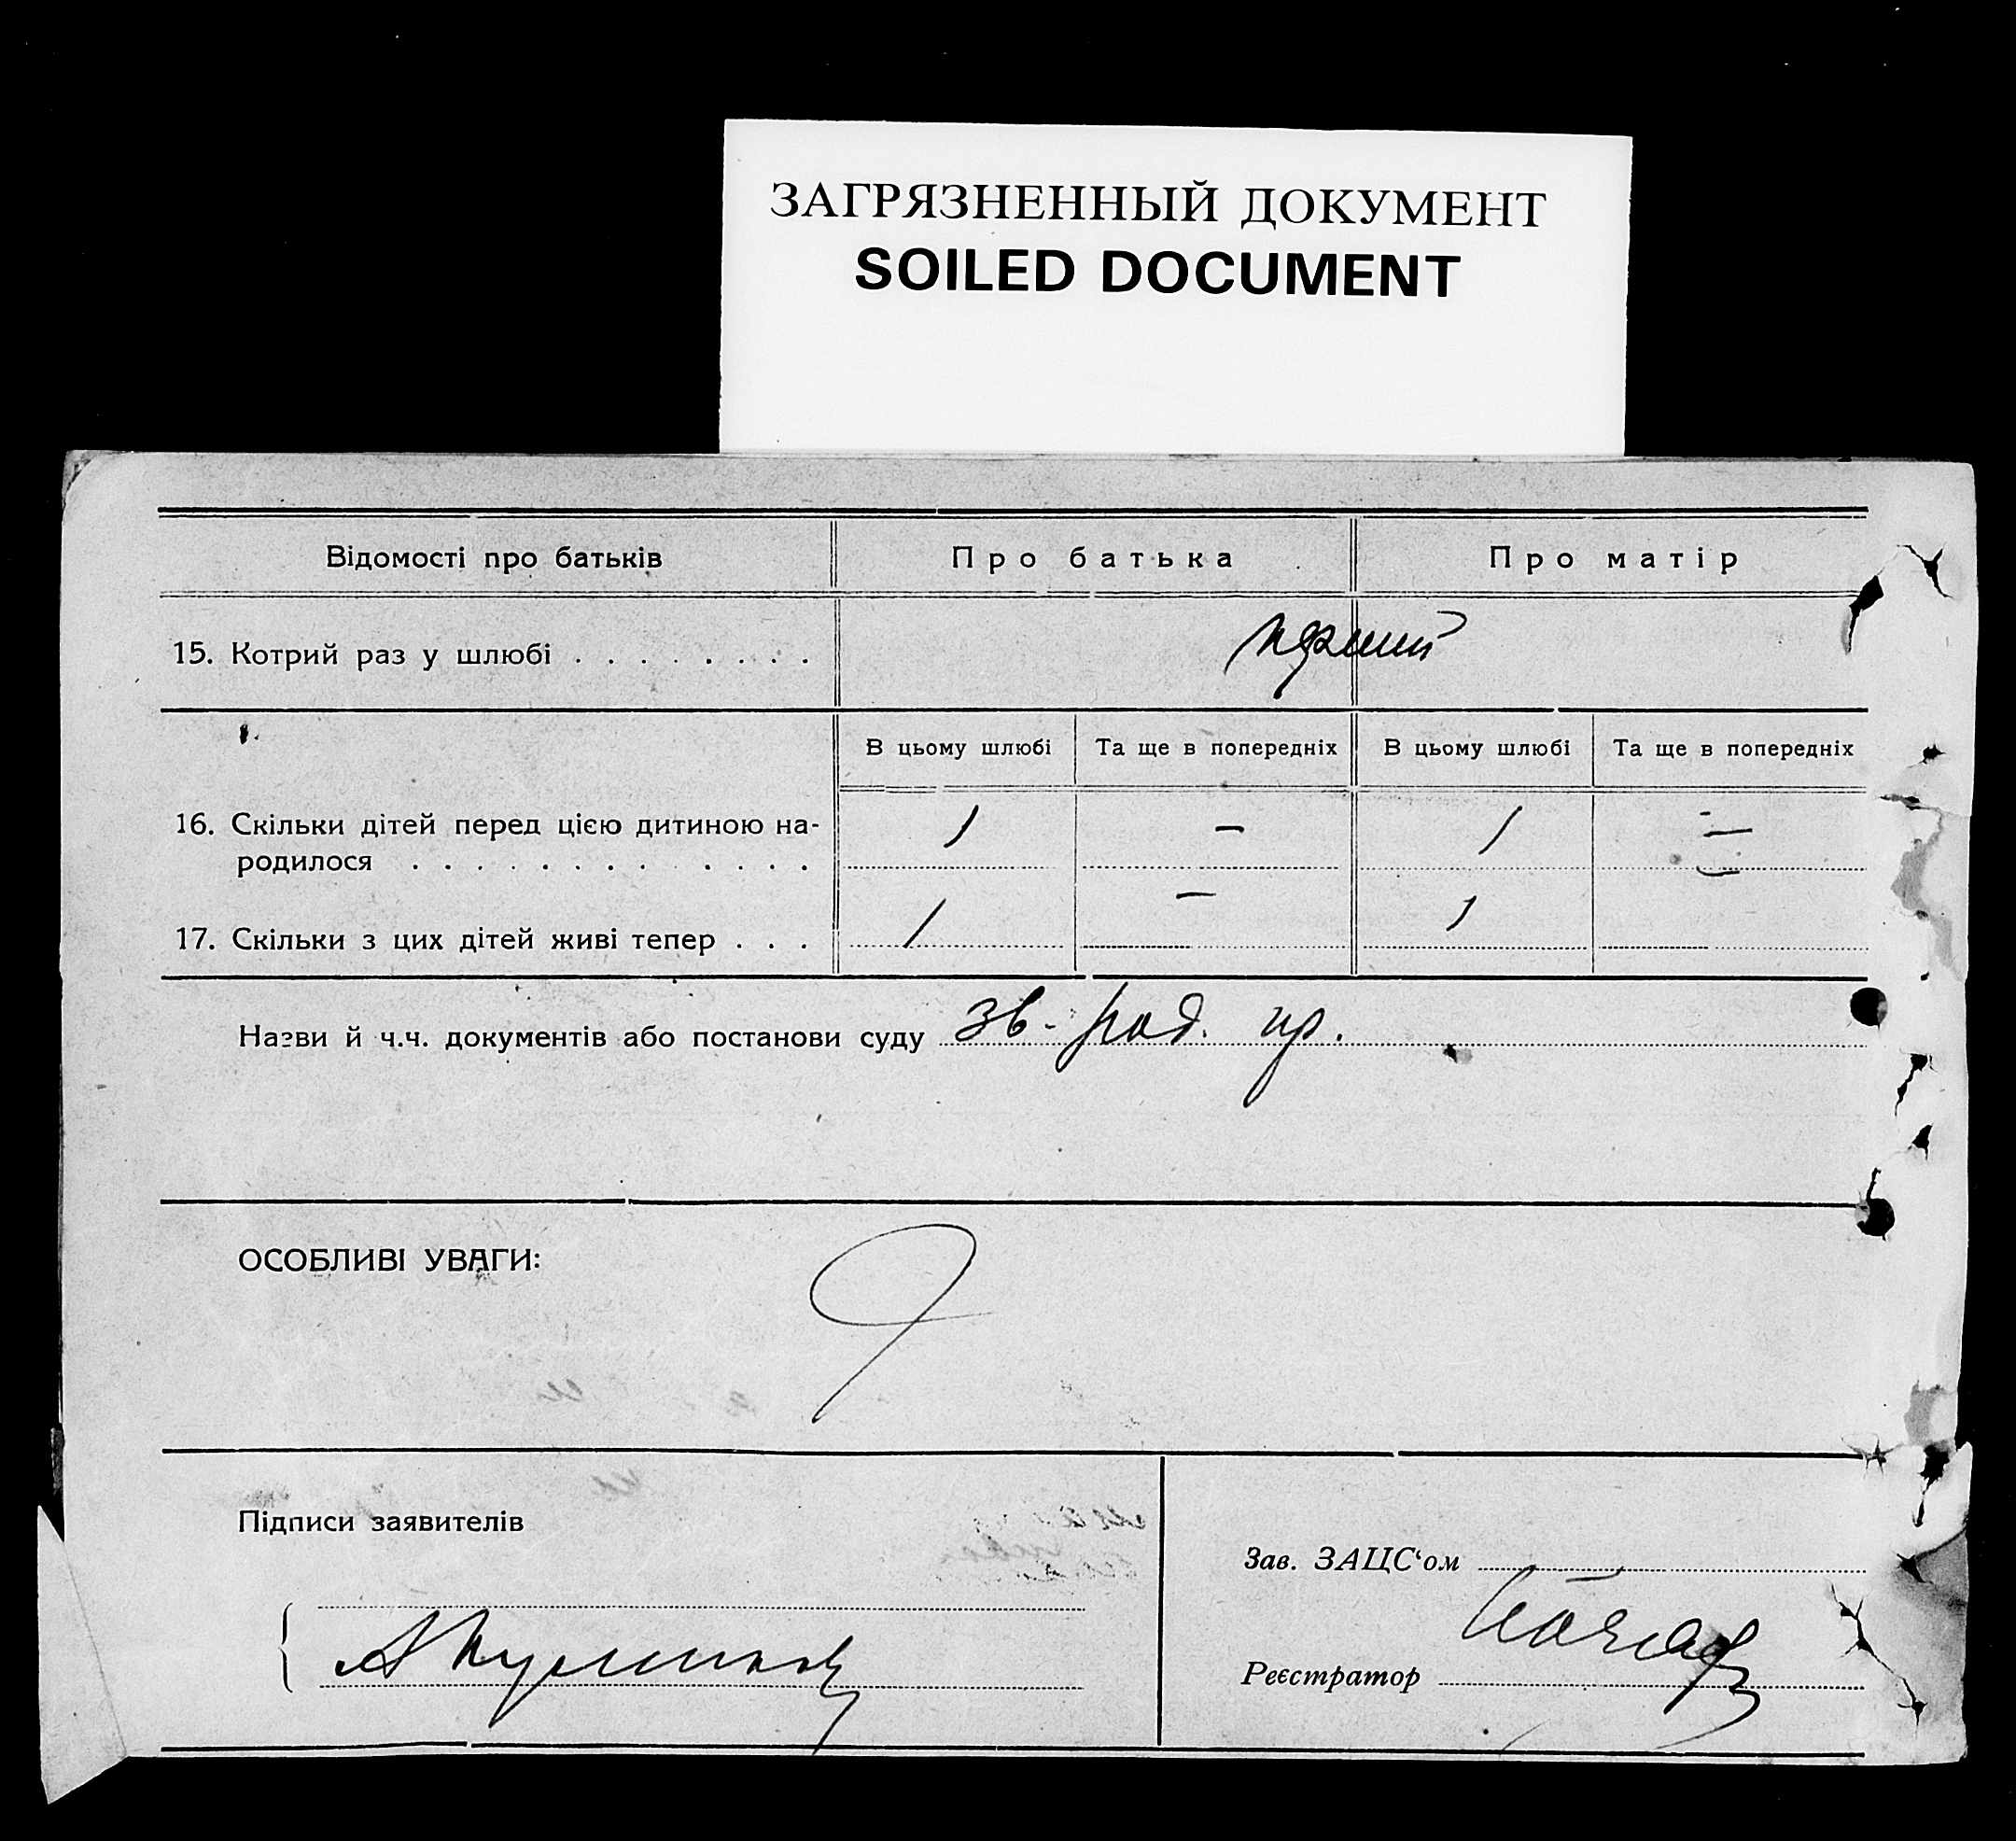 ЗАГРЯЗНЕННЫЙ ДОКУМЕНТ
SOILED DOCUMENT
Відомості про батьків Про батька Про матір
15. Котрий раз у шлюбі . . . . . . . . перший
В цьому шлюбі Та ще в попередніх В цьому шлюбі Та ще в попередніх
16. Скільки дітей перед цією дитиною на- 1 — 1 —
родилося . . . . . . . . . . . .
17. Скільки з цих дітей живі тепер . . . 1 — 1
Назви й ч.ч. документів або постанови суду зв. род. пр.
ОСОБЛИВІ УВАГИ:
Підписи заявителів
Зав. ЗАЦС‘ом
Реєстратор